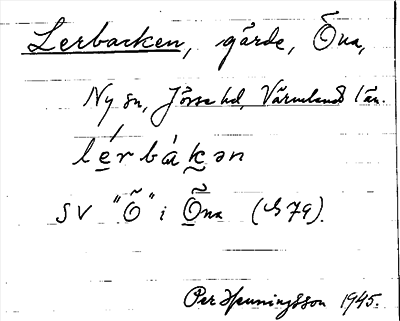 Lerbacken, gärde, Öna,
Ny sn, Jösse hd, Värmlands län.
lérbákən
SV "Ö" i Öna (S 79).
Per Henningsson 1945.